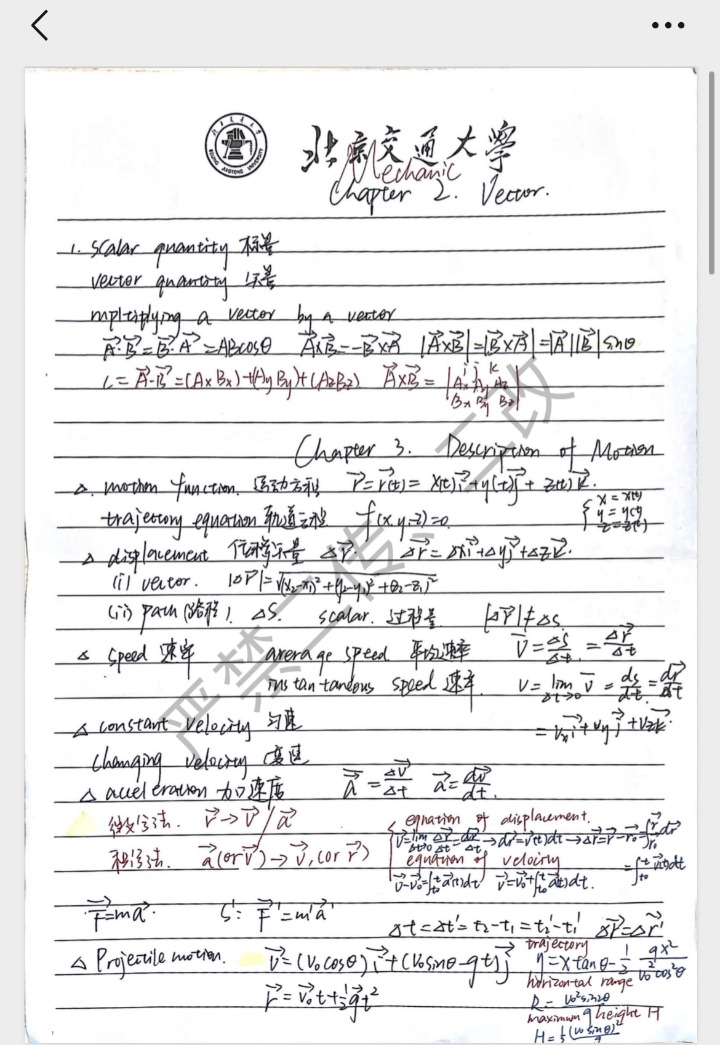 北京交通大学
BEIJING JIAOTONG UNIVERSITY
Mechanic
Chapter 2. Vector.
1. scalar quantity 标量
vector quantity 矢量
mpltiplying a vector by a vector
A⃗·B⃗=B⃗·A⃗=ABcosθ A⃗×B⃗=-B⃗×A⃗ |A⃗×B⃗|=|B⃗×A⃗|=|A⃗||B⃗|sinθ
C=A⃗·B⃗=(AxBx)+(AyBy)+(AzBz) A⃗×B⃗=|i j k
Ax Ay Az
Bx By Bz|
Chapter 3. Description of Motion
△. motion function. 运动方程 r⃗=r⃗(t)= x(t)i⃗+y(t)j⃗+z(t)k⃗.
trajectory equation 轨道方程 f(x,y,z)=0. {x=x(t) y=y(t) z=z(t)
△ displacement 位移矢量 △r⃗. △r⃗=△xi⃗+△yj⃗+△zk⃗.
(i) vector. |△r⃗|=√(x₂-x₁)²+(y₂-y₁)²+(z₂-z₁)²
(ii) path(路程). △S. scalar. 过程量 |△r⃗|≠△S.
△ speed 速率 average speed 平均速率 v̄=△s/△t =△r⃗/△t
instantaneous speed 速率. v=lim △t→0 v̄ =ds/dt=dr⃗/dt
△ constant velocity 匀速 =vxi⃗+vyj⃗+vzk⃗.
Changing velocity 变速
△ acceleration 加速度 a⃗=△v⃗/△t a⃗=dv⃗/dt.
微分法. r⃗→v⃗/a⃗ equation of displacement.
v⃗=lim △t→0 △r⃗/△t=dr⃗/dt→dr⃗=v⃗(t)dt→△r⃗=r⃗-r⃗₀=∫r₀ʳdr⃗
积分法. a⃗(or v⃗)→v⃗,(or r⃗) equation of velocity =∫t₀ᵗv⃗(t)dt
v⃗-v⃗₀=∫t₀ᵗa⃗(t)dt v⃗=v⃗₀+∫t₀ᵗa⃗(t)dt.
F⃗=ma⃗ S': F⃗'=m'a⃗' △t=△t'=t₂-t₁=t₂'-t₁' △r⃗=△r⃗'
△ Projectile motion. v⃗=(v₀cosθ)i⃗+(v₀sinθ-gt)j⃗
r⃗=v⃗₀t+½g⃗t²
trajectory
y=xtanθ-½ gx²/v₀²cos²θ
horizontal range
R=v₀²sin2θ/g
maximum height H
H=½(v₀sinθ)²/g
严禁二传、二改